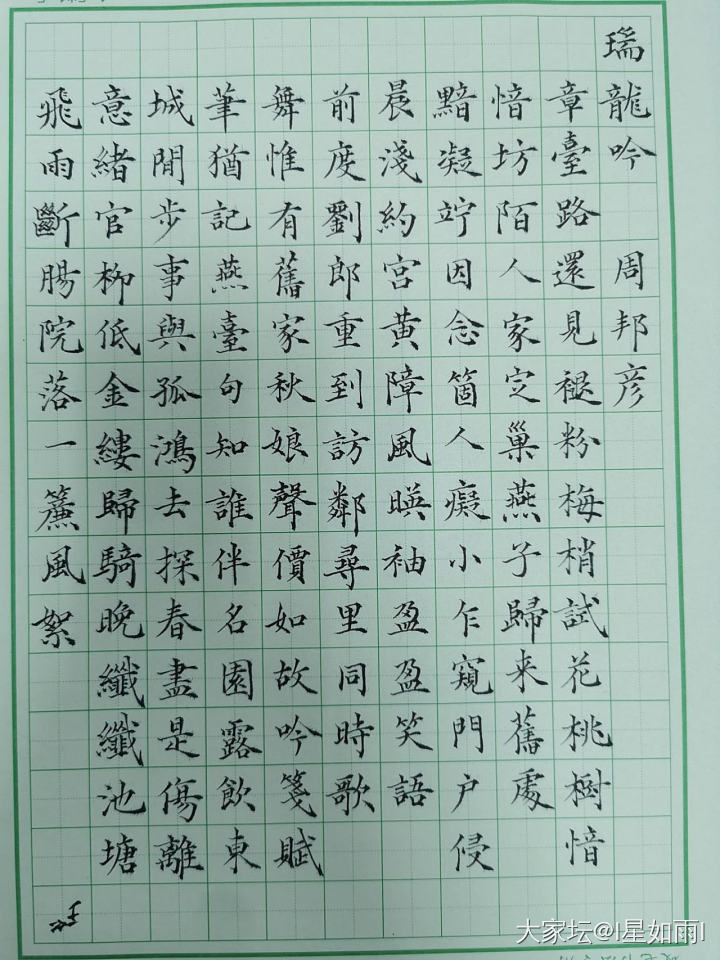 瑞龍吟 周邦彦
章臺路還見褪粉梅梢試花桃樹愔
愔坊陌人家定巢燕子歸来舊處
黯凝竚因念箇人癡小乍窺門户侵
晨淺約宮黄障風暎袖盈盈笑語
前度劉郎重到訪鄰尋里同時歌
舞惟有舊家秋娘聲價如故吟箋賦
筆猶記燕臺句知誰伴名園露飲東
城閒步事與孤鴻去探春盡是傷離
意緒官柳低金縷歸騎晚纖纖池塘
飛雨斷腸院落一簾風絮
大家坛@l星如雨l